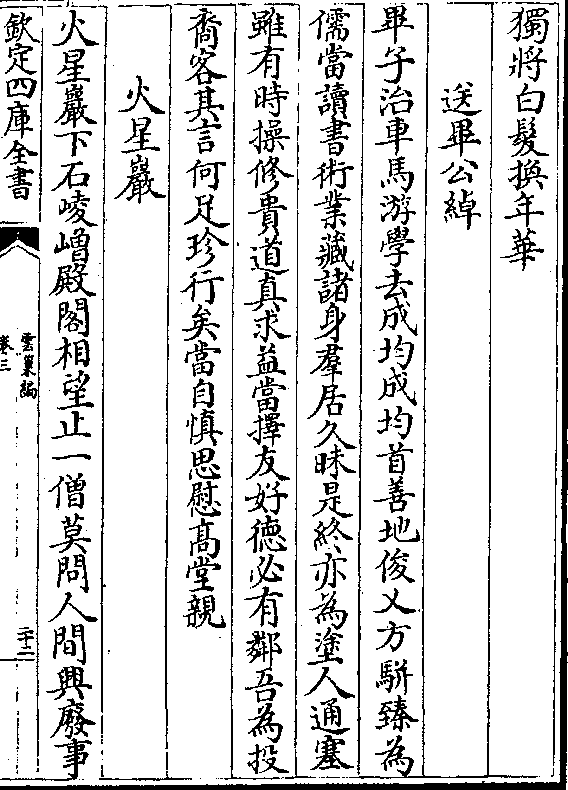 獨將白髮換年華
送畢公綽
畢子治車馬游學去成均成均首善地俊乂方駢臻為
儒當讀書術業藏諸身羣居久昧是終亦為塗人通塞
雖有時操修貴道真求益當擇友好德必有鄰吾為投
裔客其言何足珍行矣當自慎思慰髙堂親
火星巖
火星巖下石崚嶒殿閣相望止一僧莫問人間興廢事
欽定四庫全書
雲巢編
卷三
二十二